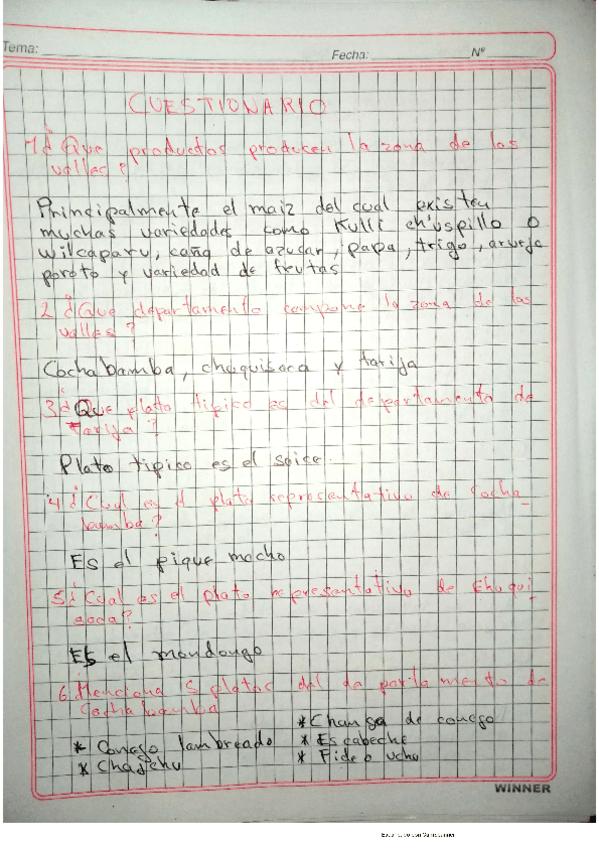 Tema:
Fecha: Nº
CUESTIONARIO
1 ¿Que productos producen la zona de los
valles?
Principalmente el maiz del cual existen
muchas variedades como Kulli ch'uspillo o
wilcaparu, caña de azucar, papa, trigo, arveja
poroto y variedad de frutas
2 ¿Que departamento compone la zona de los
valles?
Cochabamba, chuquisaca y tarija
3 ¿Que plato tipico es del departamento de
tarija?
Plato tipico es el saice.
4 ¿Cual es el plato representativo de Cocha_
bamba?
Es el pique macho
5 ¿Cual es el plato representativo de Chuqui_
saca?
Es el mondongo
6. Menciona 5 platos del departamento de
Cochabamba
* Conejo lambreado
* Chajchu
* Changa de conejo
* Escabeche
* Fideo uchu
WINNER